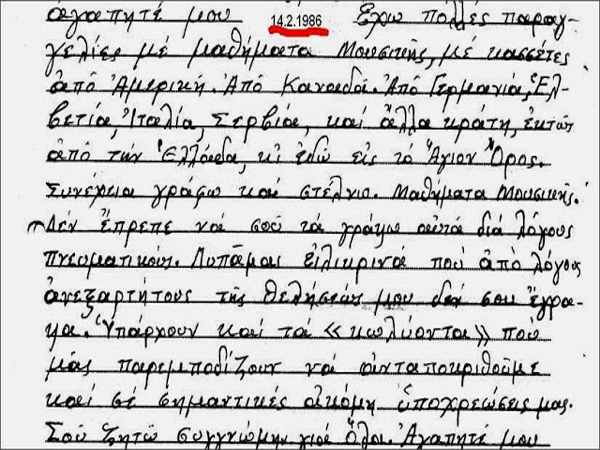 ἀγαπητέ μου 14.2.1986 Ἔχω πολλές παραγ-
γελίες μέ μαθήματα Μουσικῆς, μέ κασσέτες
ἀπό Ἀμερική. Ἀπό Καναδᾶ. Ἀπό Γερμανία, Ἑλ-
βετία, Ἰταλία, Σερβία, καί ἄλλα κράτη, ἐκτός
ἀπό τήν Ἑλλάδα, κι ἐδῶ εἰς τό Ἅγιον Ὄρος.
Συνέχεια γράφω καί στέλνω. Μαθήματα Μουσικῆς.
Δέν ἔπρεπε νά σοῦ τά γράψω αὐτά διά λόγους
πνευματικούς. Λυπᾶμαι εἰλικρινά πού ἀπό λόγους
ἀνεξαρτήτους τῆς θελήσεών μου δέν σου ἔγρα-
ψα. Ὑπάρχουν καί τά «κωλύοντα» πού
μᾶς παρεμποδίζουν νά ἀνταποκριθοῦμε
καί σέ σημαντικές ἀκόμη ὑποχρεώσεις μας.
Σοῦ ζητῶ συγγνώμην γιά ὅλα. Ἀγαπητέ μου